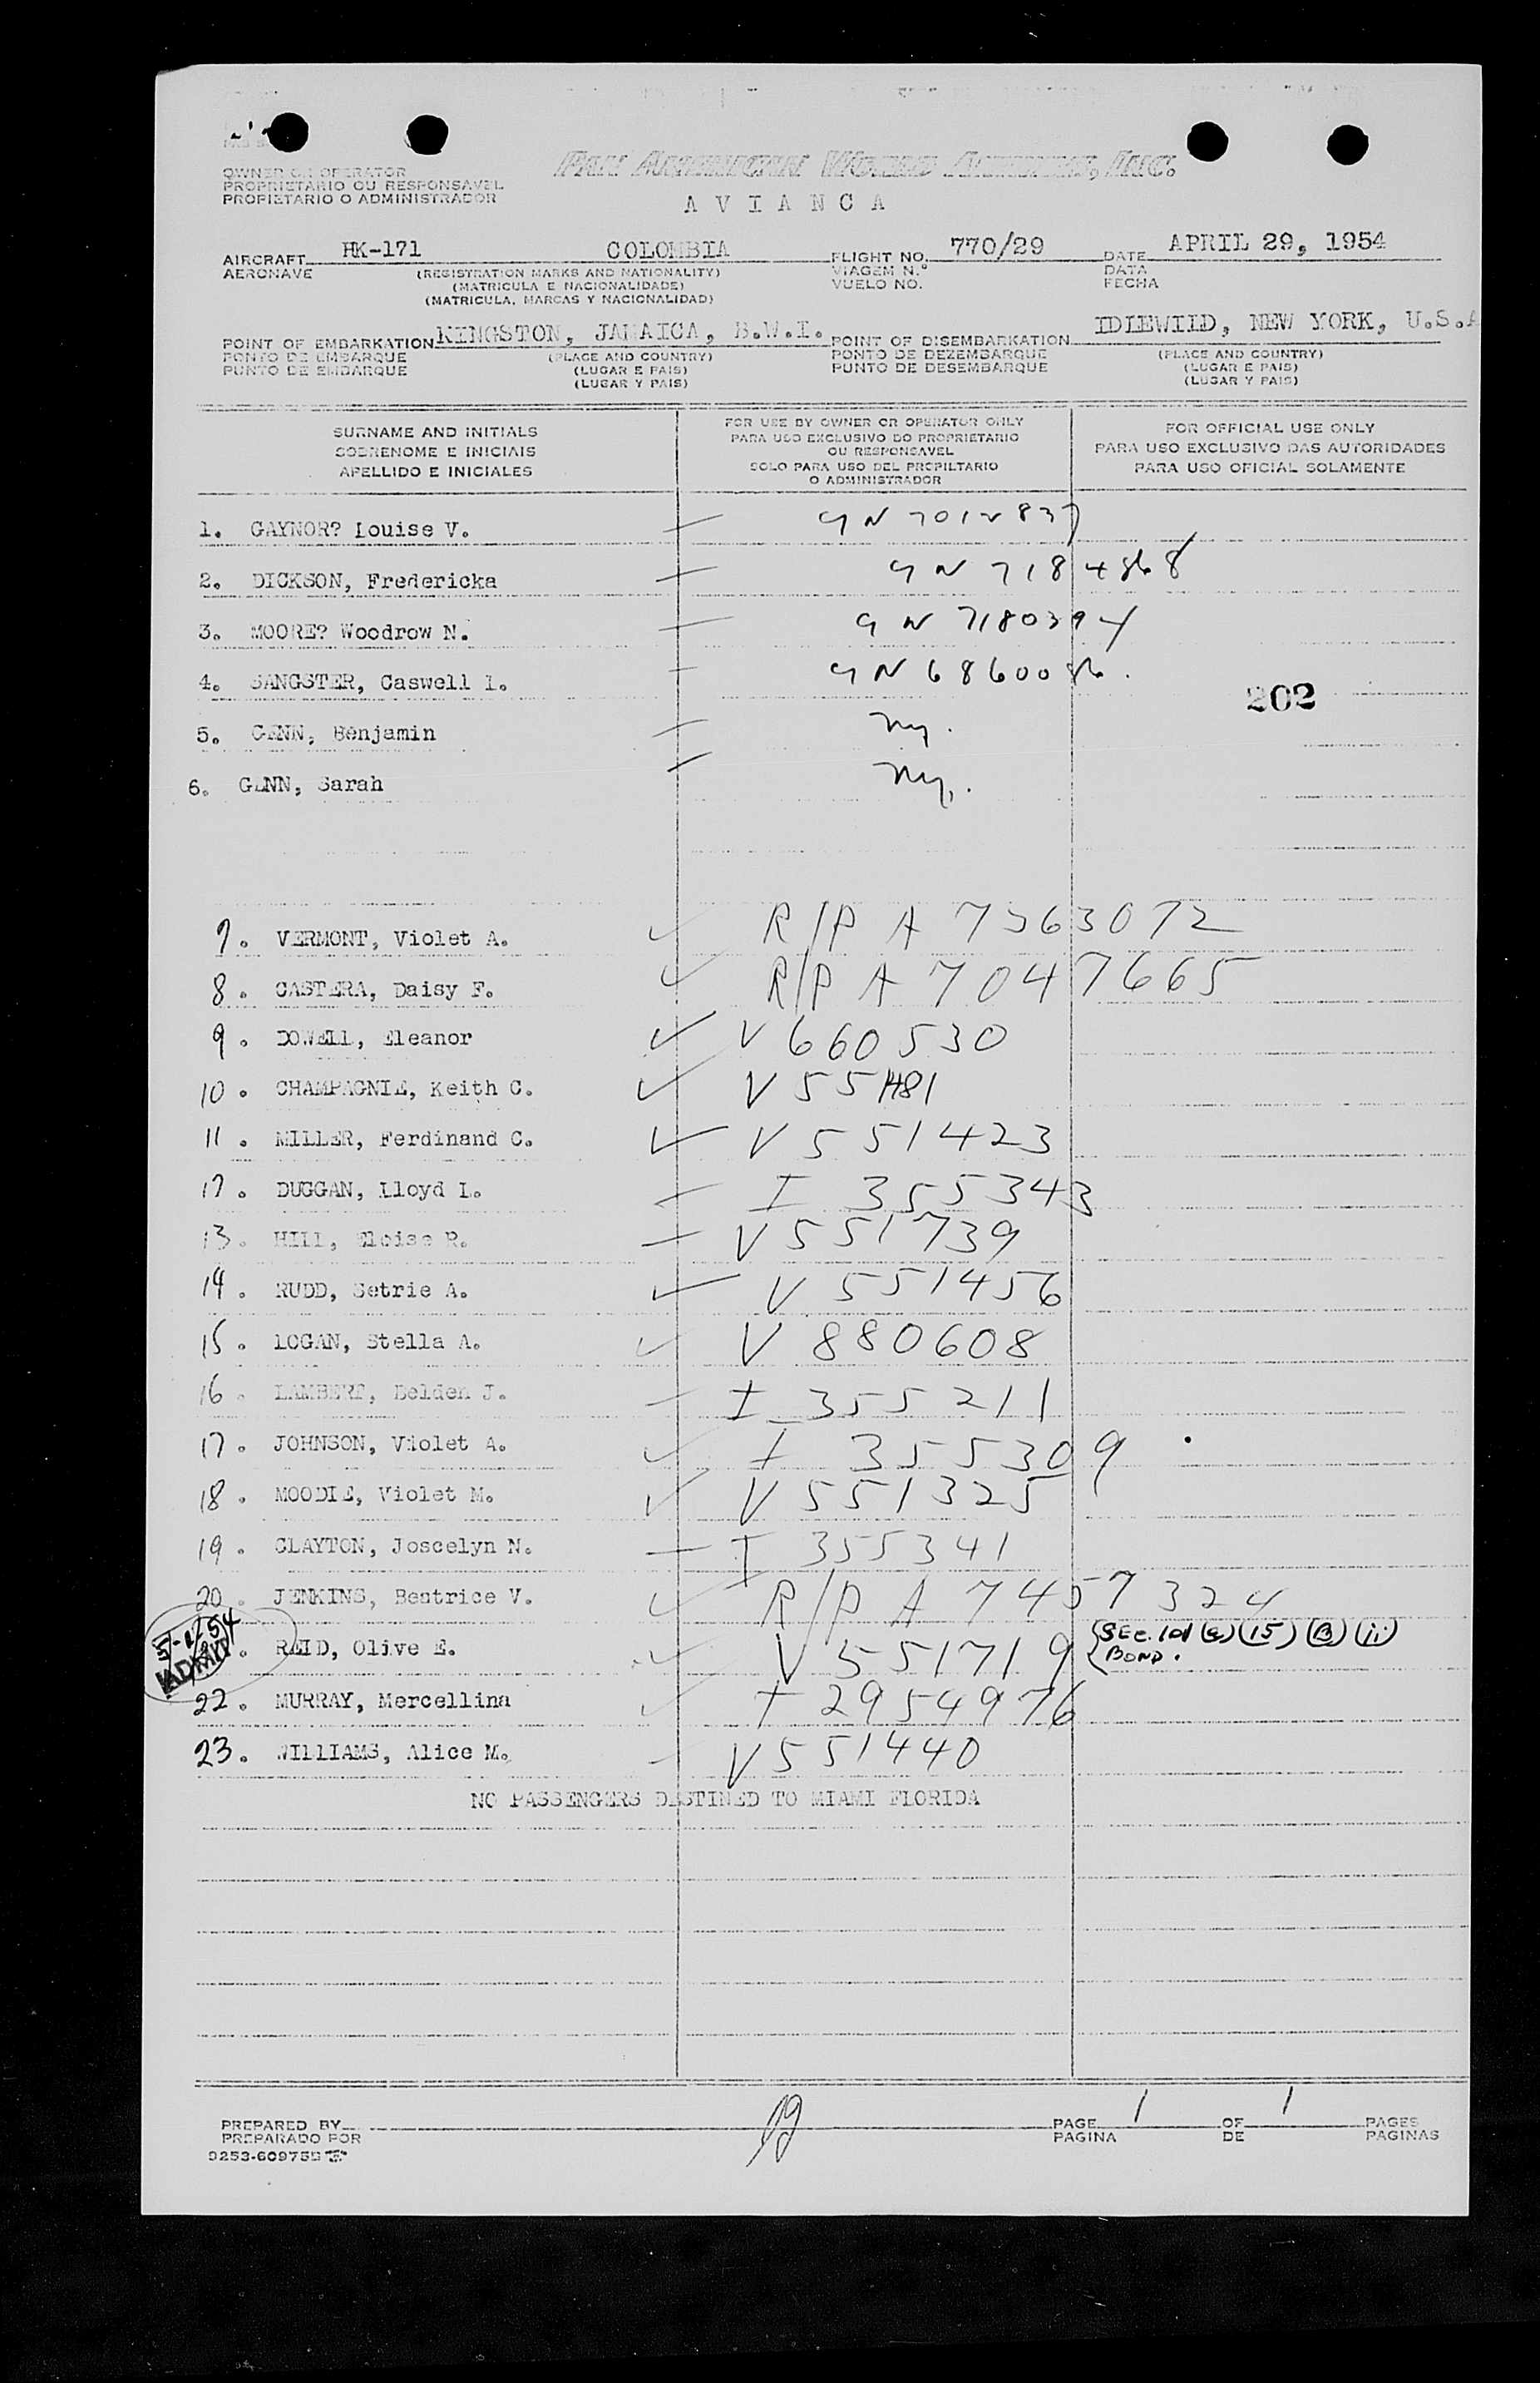 OWNER OR OPERATOR
PROPRIETARIO OU RESPONSAVEL
PROPIETARIO O ADMINISTRADOR
PAN AMERICAN WORLD AIRWAYS, INC.
A V I A N C A
AIRCRAFT HK-171 COLOMBIA FLIGHT NO. 770/29 DATE APRIL 29, 1954
AERONAVE (REGISTRATION MARKS AND NATIONALITY) VIAGEM N.° DATA
(MATRICULA E NACIONALIDADE) VUELO NO. FECHA
(MATRICULA, MARCAS Y NACIONALIDAD)
POINT OF EMBARKATION KINGSTON, JAMAICA, B.W.I. POINT OF DISEMBARKATION IDLEWILD, NEW YORK, U.S.A
PONTO DE EMBARQUE (PLACE AND COUNTRY) PONTO DE DEZEMBARQUE (PLACE AND COUNTRY)
PUNTO DE EMBARQUE (LUGAR E PAIS) PUNTO DE DESEMBARQUE (LUGAR E PAIS)
(LUGAR Y PAIS) (LUGAR Y PAIS)
SURNAME AND INITIALS
SOBRENOME E INICIAIS
APELLIDO E INICIALES
FOR USE BY OWNER OR OPERATOR ONLY
PARA USO EXCLUSIVO DO PROPRIETARIO
OU RESPONSAVEL
SOLO PARA USO DEL PROPILTARIO
O ADMINISTRADOR
FOR OFFICIAL USE ONLY
PARA USO EXCLUSIVO DAS AUTORIDADES
PARA USO OFICIAL SOLAMENTE
1. GAYNOR? Louise V. — 7012837
2. DICKSON, Fredericka — 7184868
3. MOORE? Woodrow N. — 7180394
4. SANGSTER, Caswell I. — 6860086.
202
5. GENN, Benjamin — ny.
6. GENN, Sarah — ny.
7. VERMONT, Violet A. ✓ R/P A 7363072
8. CASTERA, Daisy F. ✓ R/P A 7047665
9. DOWELL, Eleanor ✓ V 660530
10. CHAMPAGNIE, Keith C. ✓ V 551481
11. MILLER, Ferdinand C. ✓ V 551423
12. DUGGAN, Lloyd L. — I 355343
13. HILL, Eloise R. — V 551739
14. RUDD, Setrie A. ✓ V 551456
15. LOGAN, Stella A. ✓ V 880608
16. LAMBERT, Belden J. — I 355211
17. JOHNSON, Violet A. ✓ I 355309
18. MOODIE, Violet M. ✓ V 551325
19. CLAYTON, Joscelyn N. — I 355341
20. JENKINS, Beatrice V. ✓ R/P A 7457324
5-1-54
ADMIT
REID, Olive E. ✓ V 551719 SEC. 101 (a) (15) (B) (ii)
BOND.
22. MURRAY, Mercellina ✓ I 2954976
23. WILLIAMS, Alice M. — V 551440
NO PASSENGERS DESTINED TO MIAMI FLORIDA
PREPARED BY PAGE 1 OF 1 PAGES
PREPARADO POR PAGINA DE PAGINAS